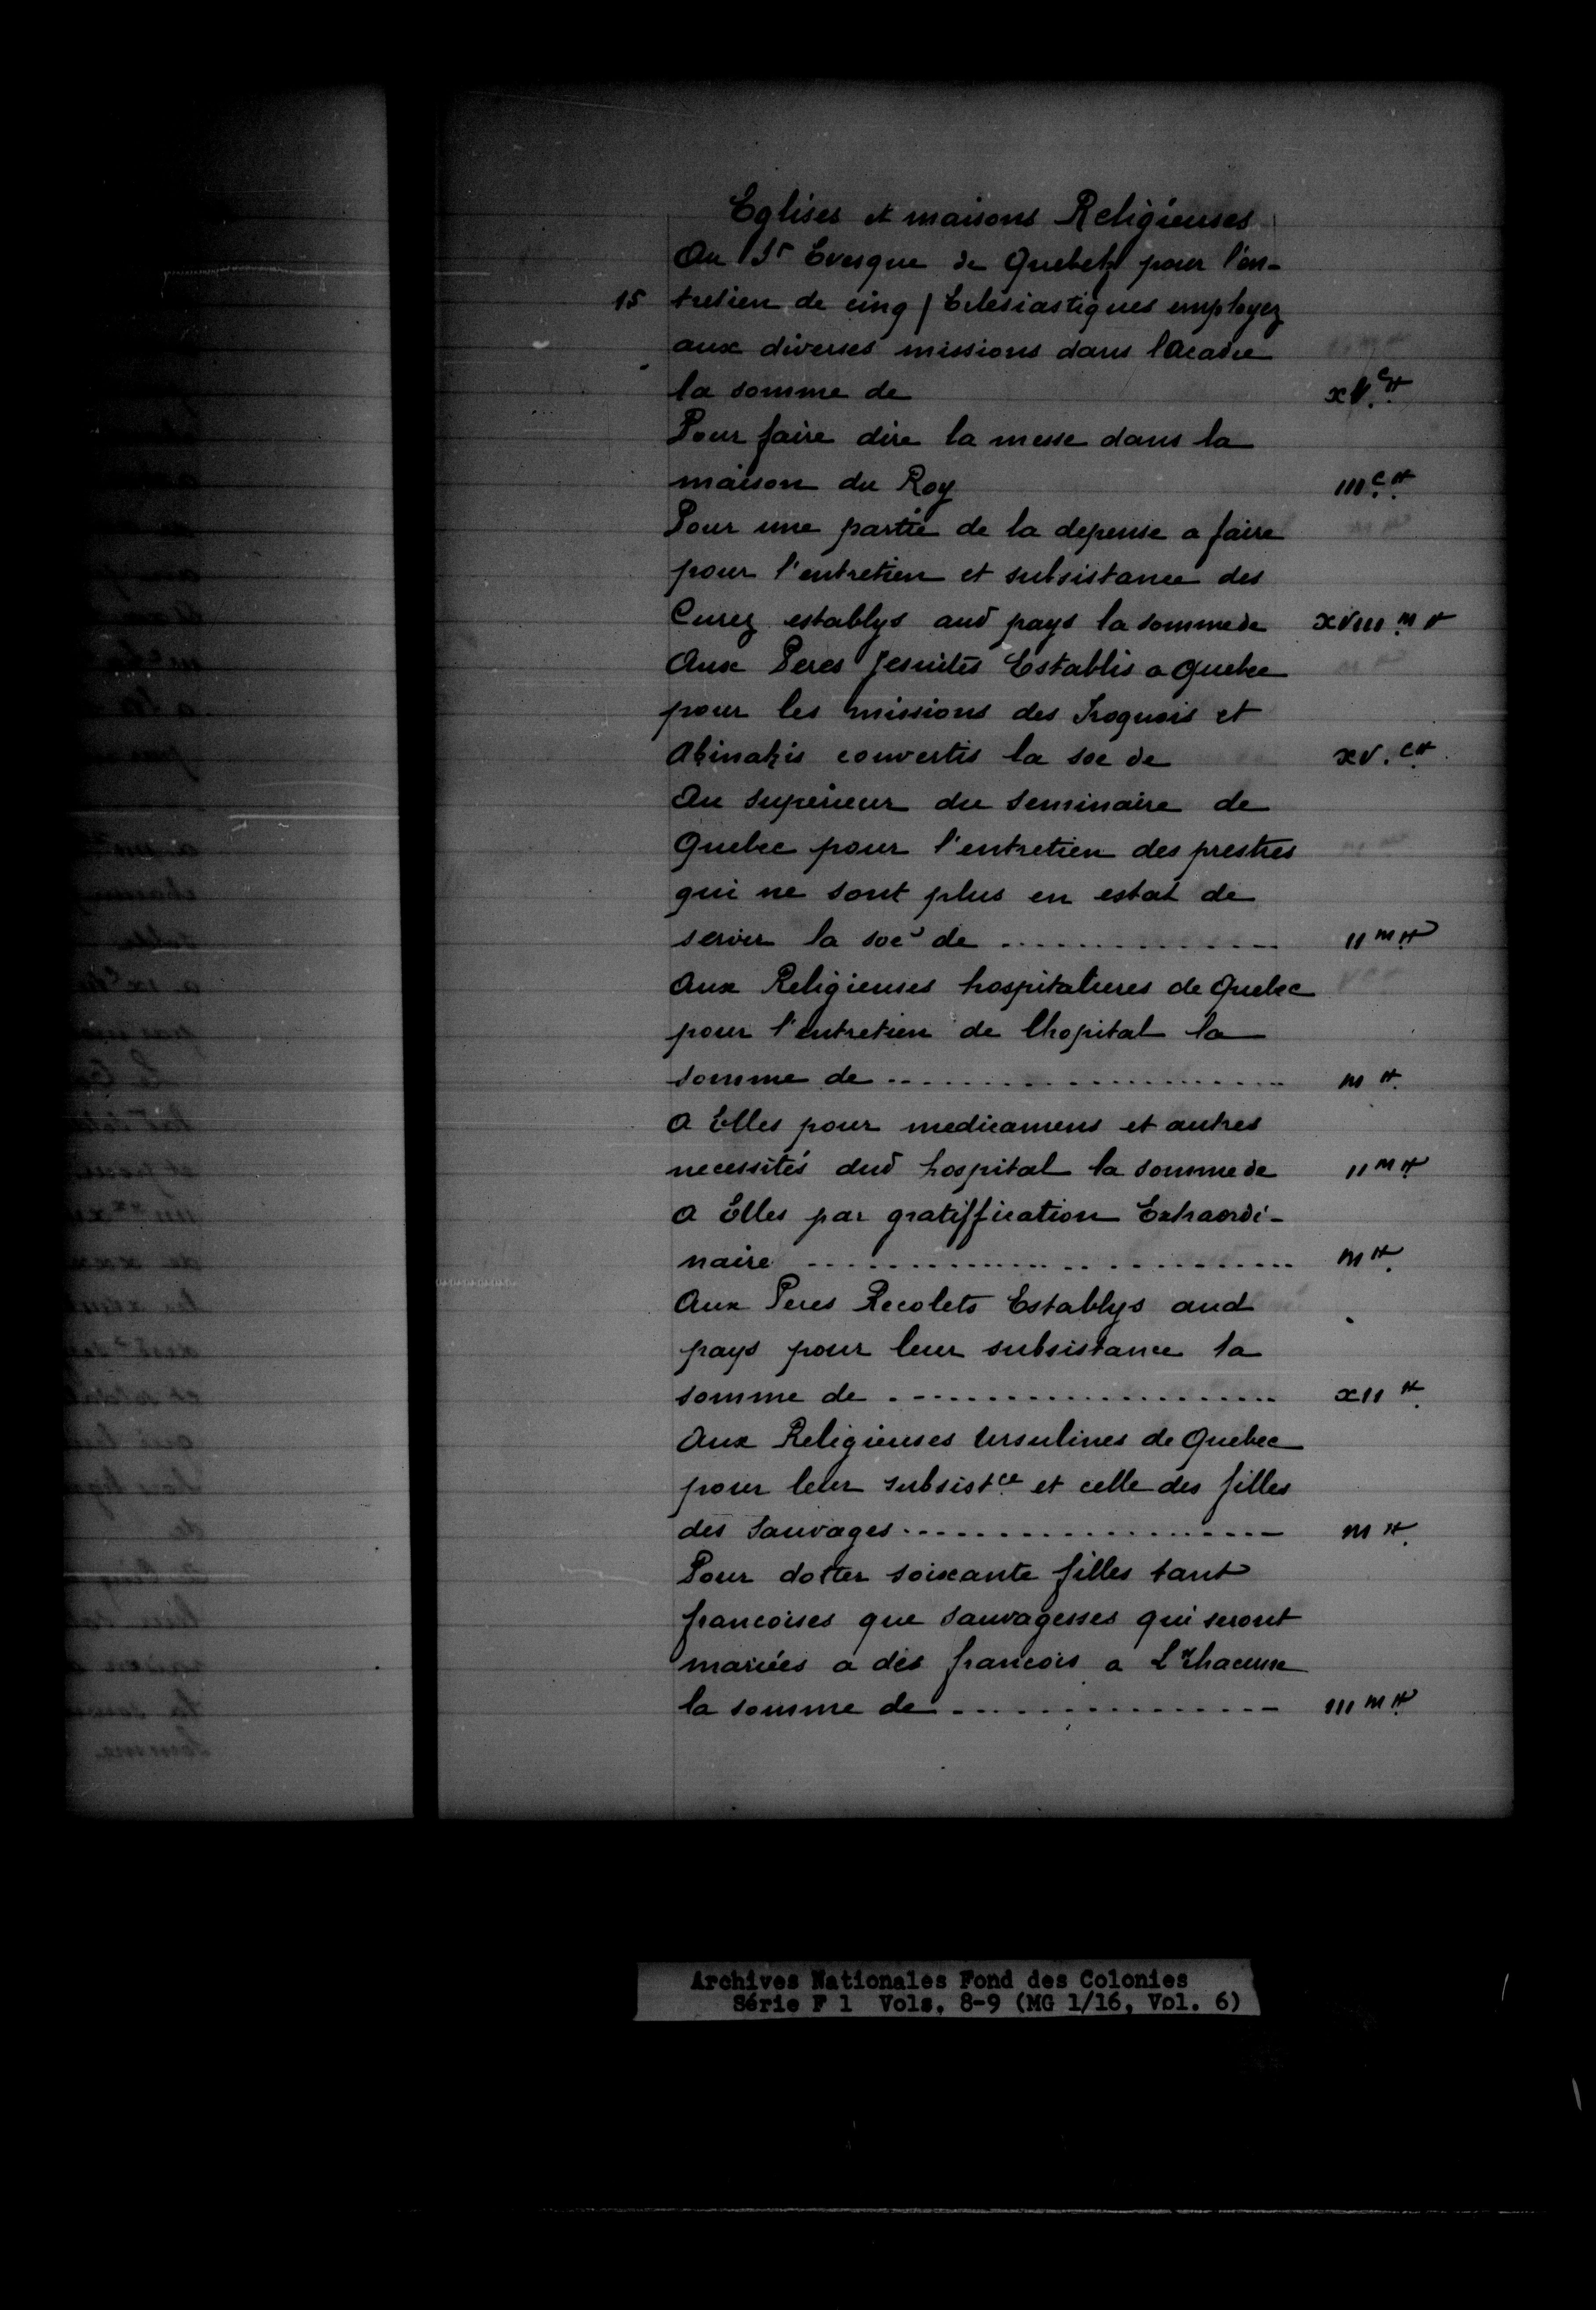 Eglises et maisons Religieuses
Au Sr Evesque de Quebek pour l'en-
15 tretien de cinq / Eclesiastiques employez
aux diverses missions dans lAcadie
la somme de xv.c ₶
Pour faire dire la messe dans la
maison du Roy iiic ₶
Pour une partie de la depense a faire
pour l'entretien et subsistance des
Curez establys aud pays la somme de xviii.m ₶
Aux Peres Jesuites Establis a Quebec
pour les missions des Iroquois et
Akinakis convertis la soe de xv.c ₶
Au superieur du seminaire de
Quebec pour l'entretien des prestres
qui ne sont plus en estat de
servir la soe de .............. iim ₶
Aux Religieuses hospitalieres de Quebec
pour l'entretien de lhopital la
somme de .................... m ₶
A Elles pour medicamens et autres
necessités dud hospital la somme de iim ₶
A Elles par gratiffication Extraordi-
naire ........................ m ₶
Aux Peres Recolets Establys aud
pays pour leur subsistance la
somme de .................... xii ₶
Aux Religieuses Ursulines de Quebec
pour leur subsistce et celle des filles
des Sauvages .................. m ₶
Pour dotter soixante filles tant
francoises que Sauvagesses qui seront
mariées a des francois a L ₶ chacune
la somme de ................ iiim ₶
Archives Nationales Fond des Colonies
Série F 1 Vols. 8-9 (MG 1/16, Vol. 6)